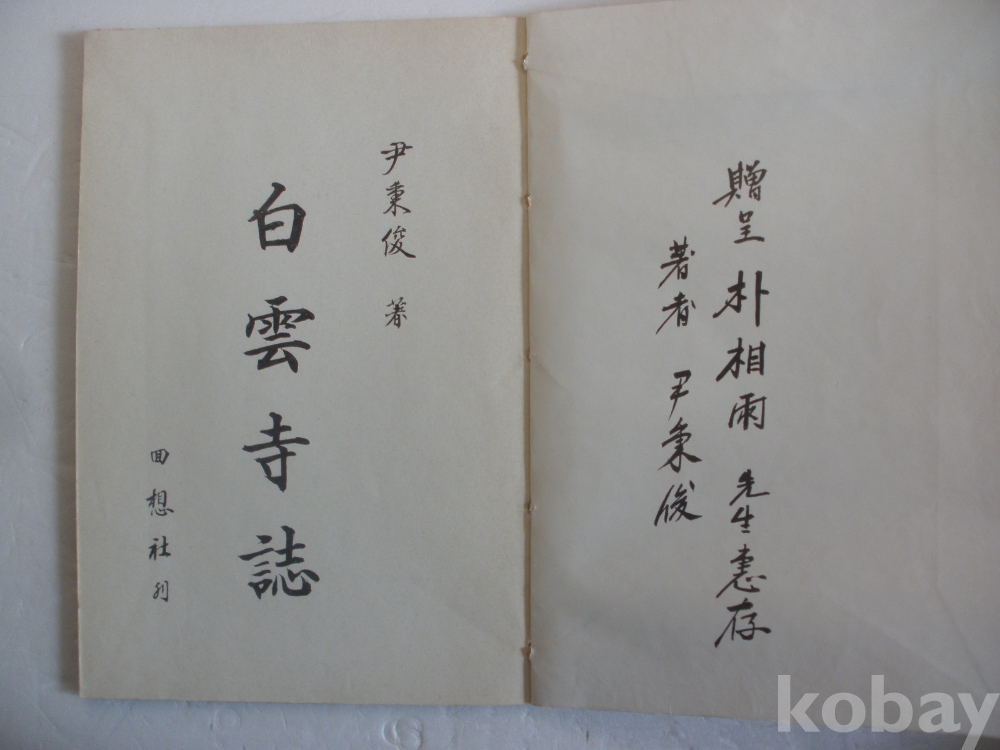 贈呈 朴相雨 先生惠存
著者 尹秉俊
尹秉俊 著
白雲寺誌
回想社刊
kobay